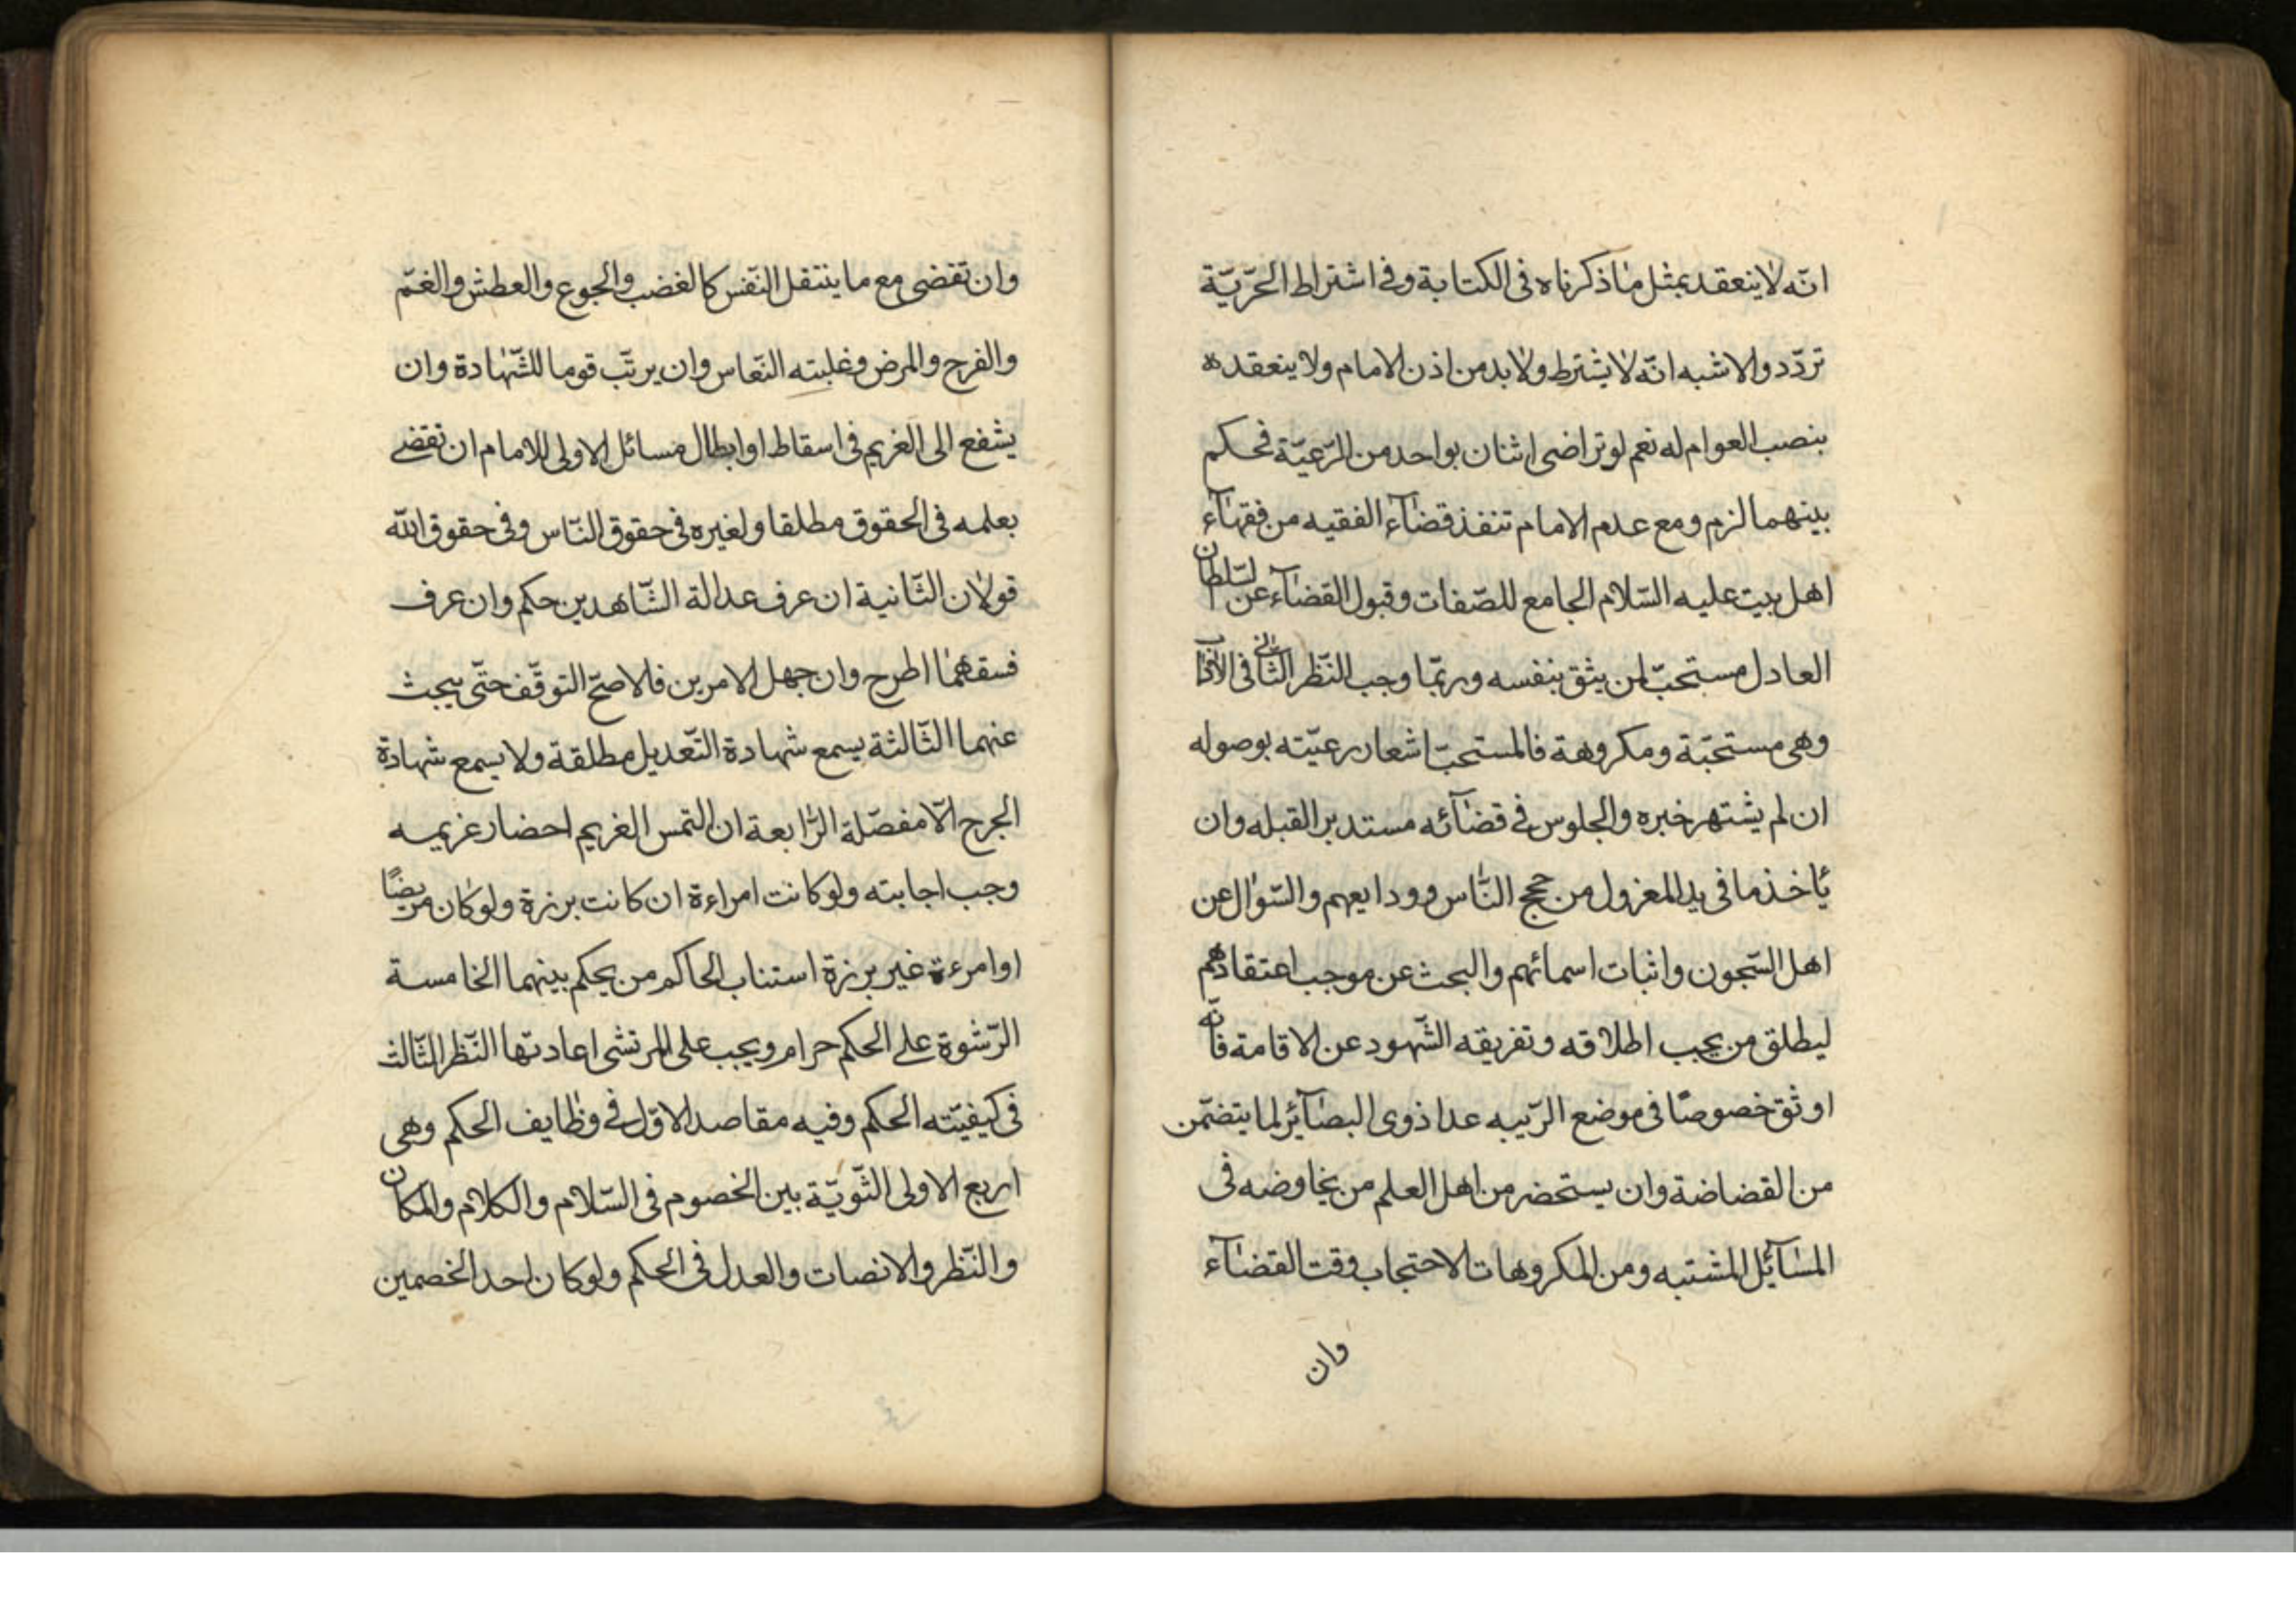 انّه لا ينعقد بمثل ما ذكرناه فى الكتابة وفى اشتراط الحرّيّة
تردّد والاشبه انّه لا يشترط ولا بد من اذن الامام ولا ينعقد ه
بنصب العوام له نعم لو تراضى اثنان بواحد من الرّعيّة فحكم
بينهما لزم ومع عدم الامام تنفذ قضآء الفقيه من فقهآء
اهل بيت عليه السّلام الجامع للصّفات وقبول القضآء عن السّلطان
العادل مستحبّ لمن يثق بنفسه وربّما وجب النّظر الثّانى فى الآداب
وهى مستحبّة ومكروهة فالمستحبّ اشعار رعيّته بوصوله
ان لم يشتهر خبره والجلوس فى قضآئه مستدبر القبله وان
يأخذ ما فى يد المعزول من حجج النّاس وودايعهم والسّوال عن
اهل السّجون واثبات اسمائهم والبحث عن موجب اعتقادهم
ليطلق من يجب اطلاقه وتفريقه الشّهود عن الاقامة فانّه
اوثق خصوصًا فى موضع الرّيبه عدا ذوى البصآئر لما يتضمّن
من القضاضة وان يستحضر من اهل العلم من يخاوضه فى
المسآئل المشتبه ومن المكروهات الاحتجاب وقت القضآء
وان
وان تقضى مع ما ينتقل النّفس كالغضب والجوع والعطش والغمّ
والفرح والمرض وغلبته النّعاس وان يرتّب قوما للشّهادة وان
يشفع الى الغريم فى اسقاط او ابطال مسائل الاولى للامام ان تقضى
بعلمه فى الحقوق مطلقا ولغيره فى حقوق النّاس وفى حقوق الله
قولان الثّانية ان عرف عدالة الشّاهدين حكم وان عرف
فسقهما اطرح وان جهل الامرين فالاصحّ التوقّف حتّى يبحث
عنهما الثّالثة يسمع شهادة التّعديل مطلقة ولا يسمع شهادة
الجرح الّا مفصّلة الرّابعة ان التمس الغريم احضار غريمه
وجب اجابته ولو كانت امراءة ان كانت برزة ولو كان مريضًا
او امرءة غير برزة استناب الحاكم من يحكم بينهما الخامسة
الرّشوة على الحكم حرام ويجب على المرتشى اعادتها النّظر الثّالث
فى كيفيّته الحكم وفيه مقاصد الاوّل فى وظايف الحكم وهى
اربع الاولى التّويّة بين الخصوم فى السّلام والكلام والمكان
والنّظر والانصات والعدل فى الحكم ولو كان احد الخصمين